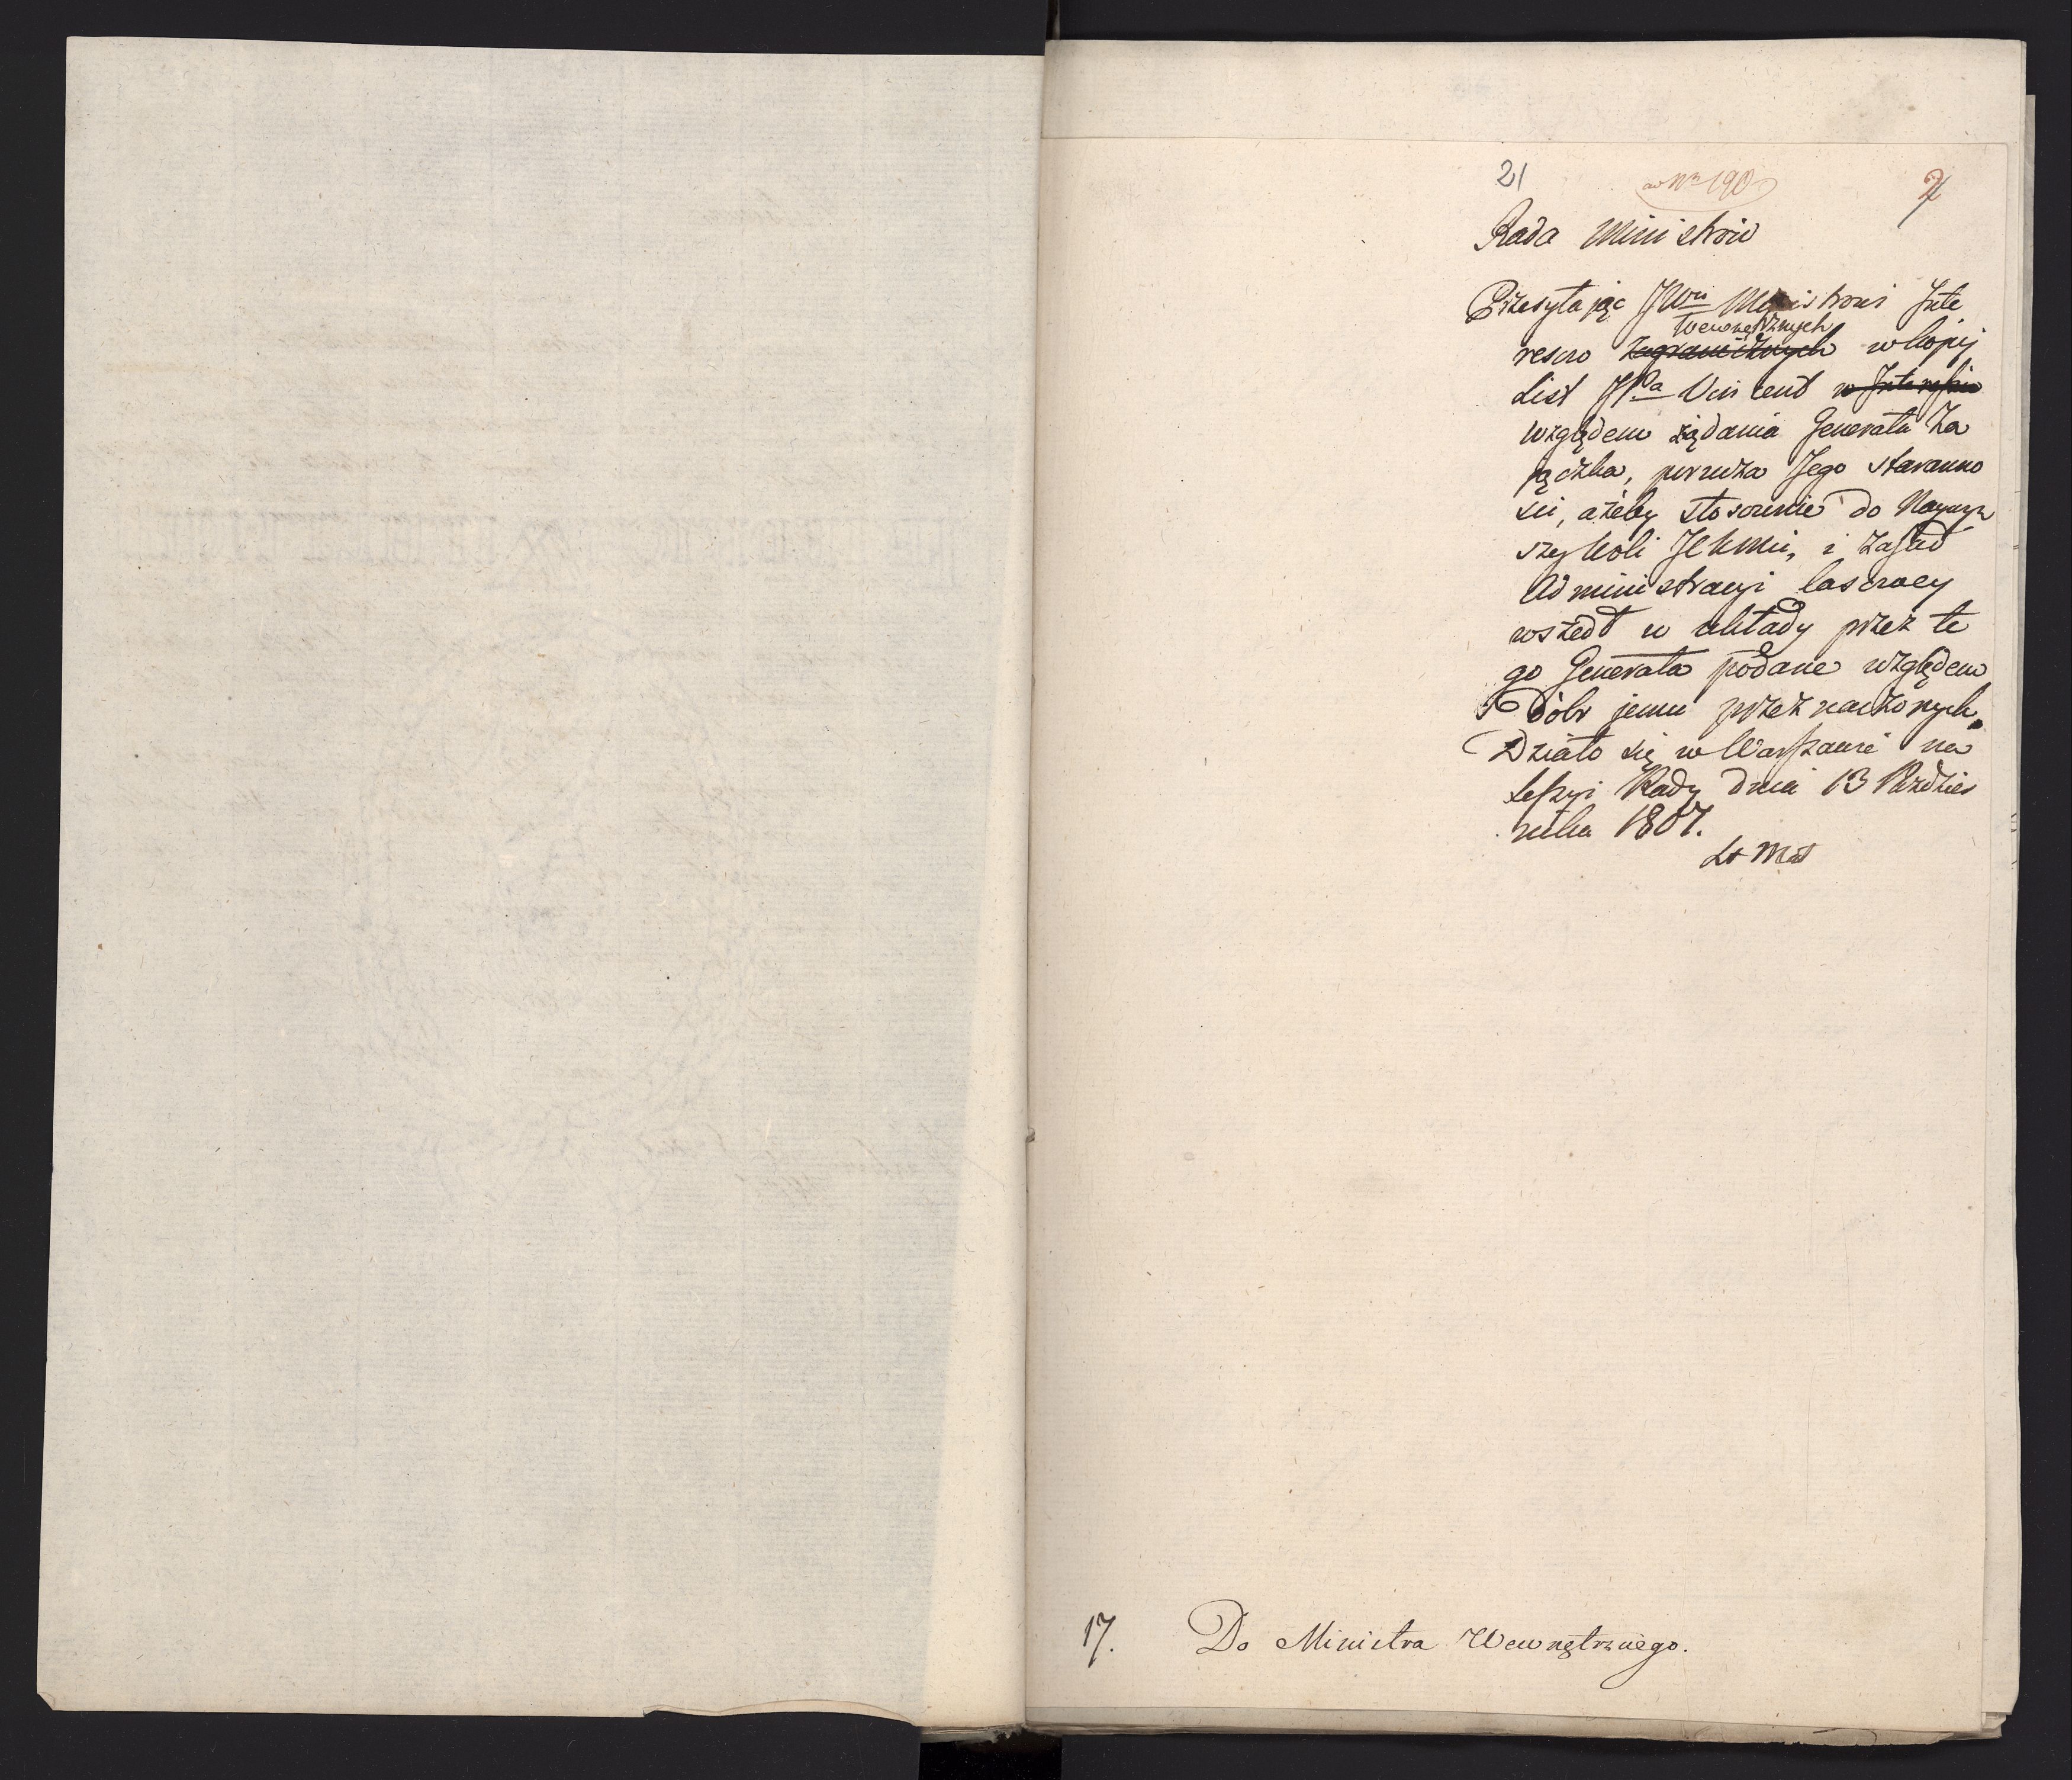 21
ad Nr 190
2
Rada Ministrów
Przesyłając JWu Ministrowi Inte
wewnętrznych
resów zagranicznych w kopij
list JPa Vincent w Interessie
względem żądania Generała Za
jączka, porucza Jego staranno
ści, ażeby stosownie do Naywyż
szey Woli JCKMci, i zasad
Administracyi krajowey
wszedł w układy przez te
go Generała podane względem
Dóbr jemu przeznaczonych.
Działo się w Warszawie na
Sessyi Rady dnia 13 Paździer
nika 1807.
17. Do Ministra Wewnętrznego.